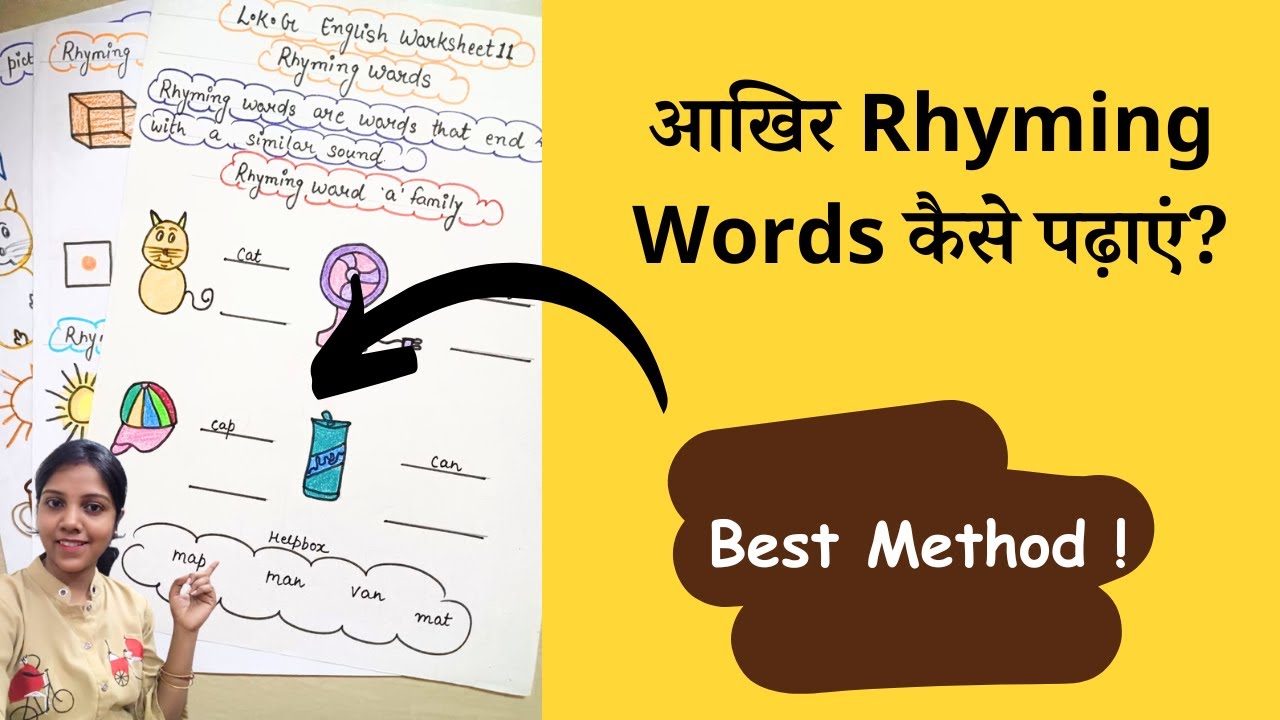 L.K.G English Worksheet 11
Rhyming Words
Rhyming words are words that end
with a similar sound.
Rhyming word 'a' family
cat
cap
can
Helpbox
map
man
van
mat
pict
Rhyming
Rhy
आखिर Rhyming
Words कैसे पढ़ाएं?
Best Method !